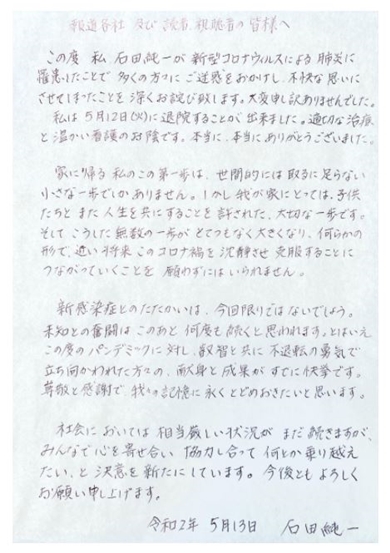 報道各社 及び 読者、視聴者の皆様へ
この度 私 石田純一が 新型コロナウィルスによる肺炎に
罹患したことで 多くの方々に ご迷惑をおかけし、不快な思いに
させてしまったことを 深くお詫び致します。大変申し訳ありませんでした。
私は 5月12日(火)に退院することが 出来ました。適切な治療
と温かい看護のお陰です。本当に、本当に ありがとうございました。
家に帰る 私のこの第一歩は、世間的には 取るに足らない
小さな一歩でしかありません。しかし 我が家にとっては、子供
たちと また 人生を共にすることを 許された、大切な一歩です。
そして こうした 無数の一歩が とてつもなく大きくなり、何らかの
形で、近い将来 このコロナ禍を 沈静させ 克服することに
つながっていくことを 願わずには いられません。
新感染症とのたたかいは、今回限りではないでしょう。
未知との奮闘は このあと 何度も続くと思われます。とはいえ
この度の パンデミックに対し、叡智と共に 不退転の勇気で
立ち向かわれた方々の、献身と成果が すでに快挙です。
尊敬と感謝で 我々の記憶に 永くとどめおきたいと思います。
社会においては 相当厳しい状況が まだ続きますが、
みんなで心を寄せ合い 協力し合って 何とか乗り越え
たい、と 決意を新たにしています。今後とも よろしく
お願い申し上げます。
令和2年 5月13日 石田純一